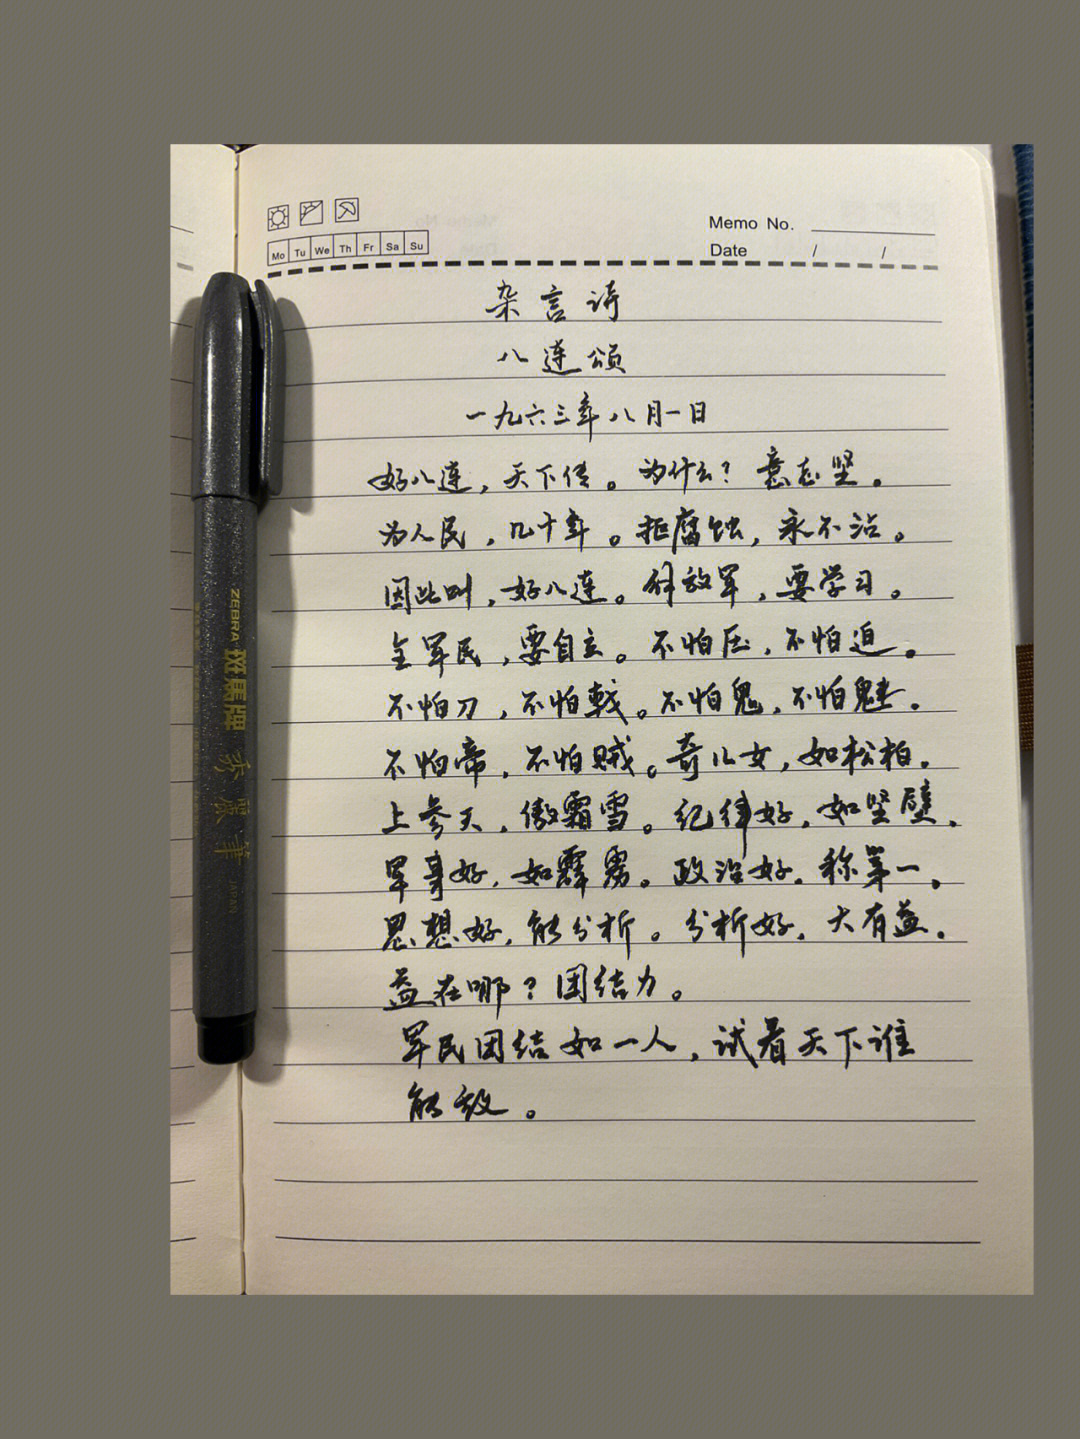 Memo No.
Mo Tu We Th Fr Sa Su
Date / /
杂言诗
八连颂
一九六三年八月一日
好八连，天下传。为什么？意志坚。
为人民，几十年。拒腐蚀，永不沾。
因此叫，好八连。解放军，要学习。
全军民，要自立。不怕压，不怕迫。
不怕刀，不怕戟。不怕鬼，不怕魅。
不怕帝，不怕贼。奇儿女，如松柏。
上参天，傲霜雪。纪律好，如坚壁。
军事好，如霹雳。政治好，称第一。
思想好，能分析。分析好，大有益。
益在哪？团结力。
军民团结如一人，试看天下谁
能敌。
ZEBRA 斑馬牌 秀麗筆 JAPAN